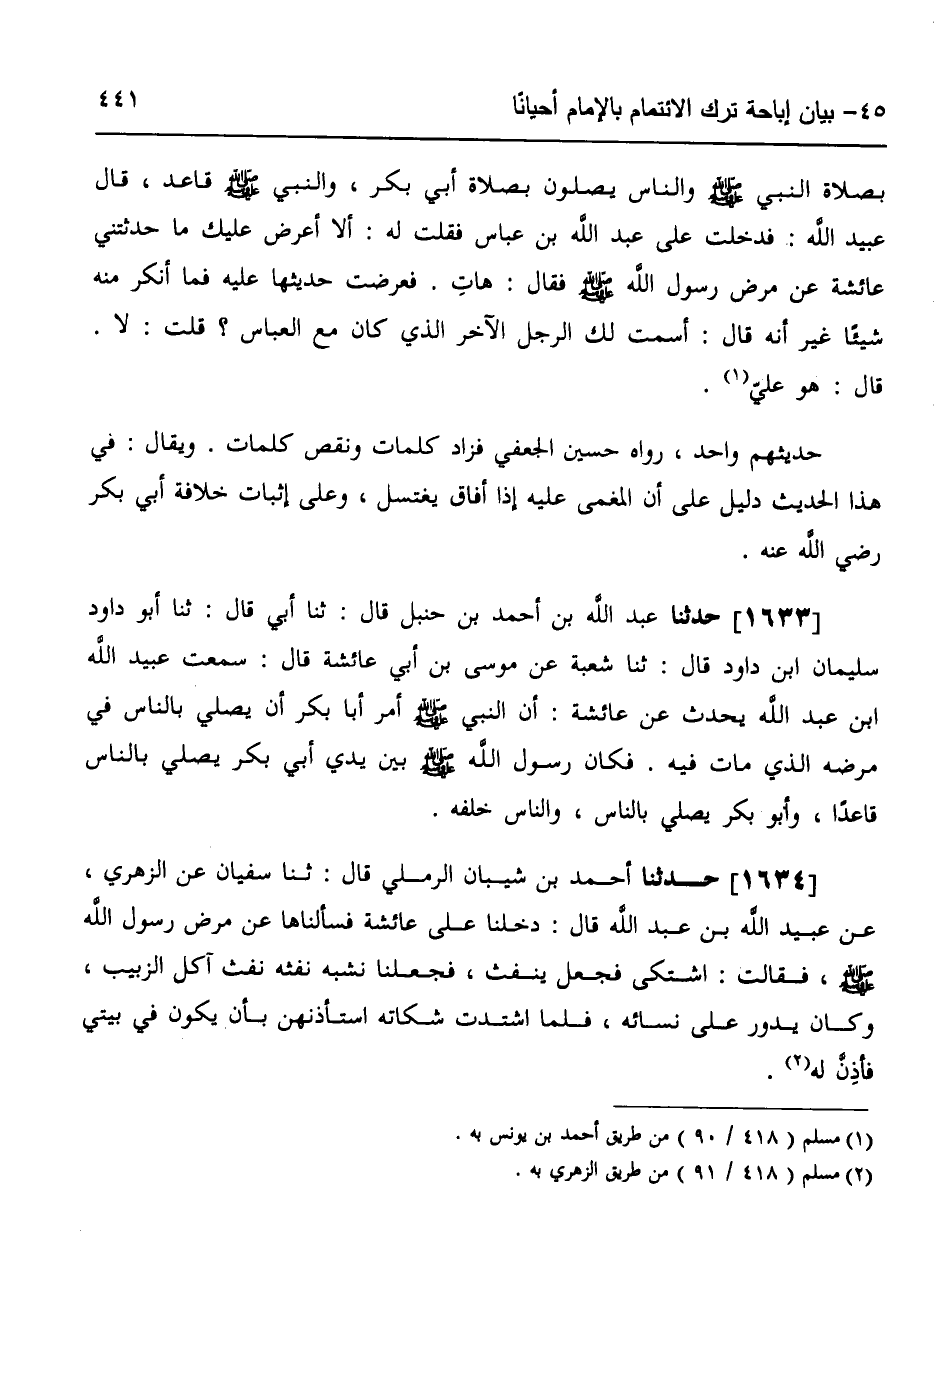 ٤٥- بيان إباحة ترك الائتمام بالإمام أحيانًا ٤٤١
بصلاة النبي ﷺ والناس يصلون بصلاة أبي بكر ، والنبي ﷺ قاعد ، قال
عبيد الله : فدخلت على عبد الله بن عباس فقلت له : ألا أعرض عليك ما حدثتني
عائشة عن مرض رسول الله ﷺ فقال : هاتِ . فعرضت حديثها عليه فما أنكر منه
شيئًا غير أنه قال : أسمت لك الرجل الآخر الذي كان مع العباس ؟ قلت : لا .
قال : هو عليّ(١) .
حديثهم واحد ، رواه حسين الجعفي فزاد كلمات ونقص كلمات . ويقال : في
هذا الحديث دليل على أن المغمى عليه إذا أفاق يغتسل ، وعلى إثبات خلافة أبي بكر
رضي الله عنه .
[١٦٣٣] حدثنا عبد الله بن أحمد بن حنبل قال : ثنا أبي قال : ثنا أبو داود
سليمان ابن داود قال : ثنا شعبة عن موسى بن أبي عائشة قال : سمعت عبيد الله
ابن عبد الله يحدث عن عائشة : أن النبي ﷺ أمر أبا بكر أن يصلي بالناس في
مرضه الذي مات فيه . فكان رسول الله ﷺ بين يدي أبي بكر يصلي بالناس
قاعدًا ، وأبو بكر يصلي بالناس ، والناس خلفه .
[١٦٣٤] حدثنا أحمد بن شيبان الرملي قال : ثنا سفيان عن الزهري ،
عن عبيد الله بن عبد الله قال : دخلنا على عائشة فسألناها عن مرض رسول الله
ﷺ ، فقالت : اشتكى فجعل ينفث ، فجعلنا نشبه نفثه نفث آكل الزبيب ،
وكان يدور على نسائه ، فلما اشتدت شكاته استأذنهن بأن يكون في بيتي
فأذِنَّ له(٢) .
(١) مسلم ( ٤١٨ / ٩٠ ) من طريق أحمد بن يونس به .
(٢) مسلم ( ٤١٨ / ٩١ ) من طريق الزهري به .